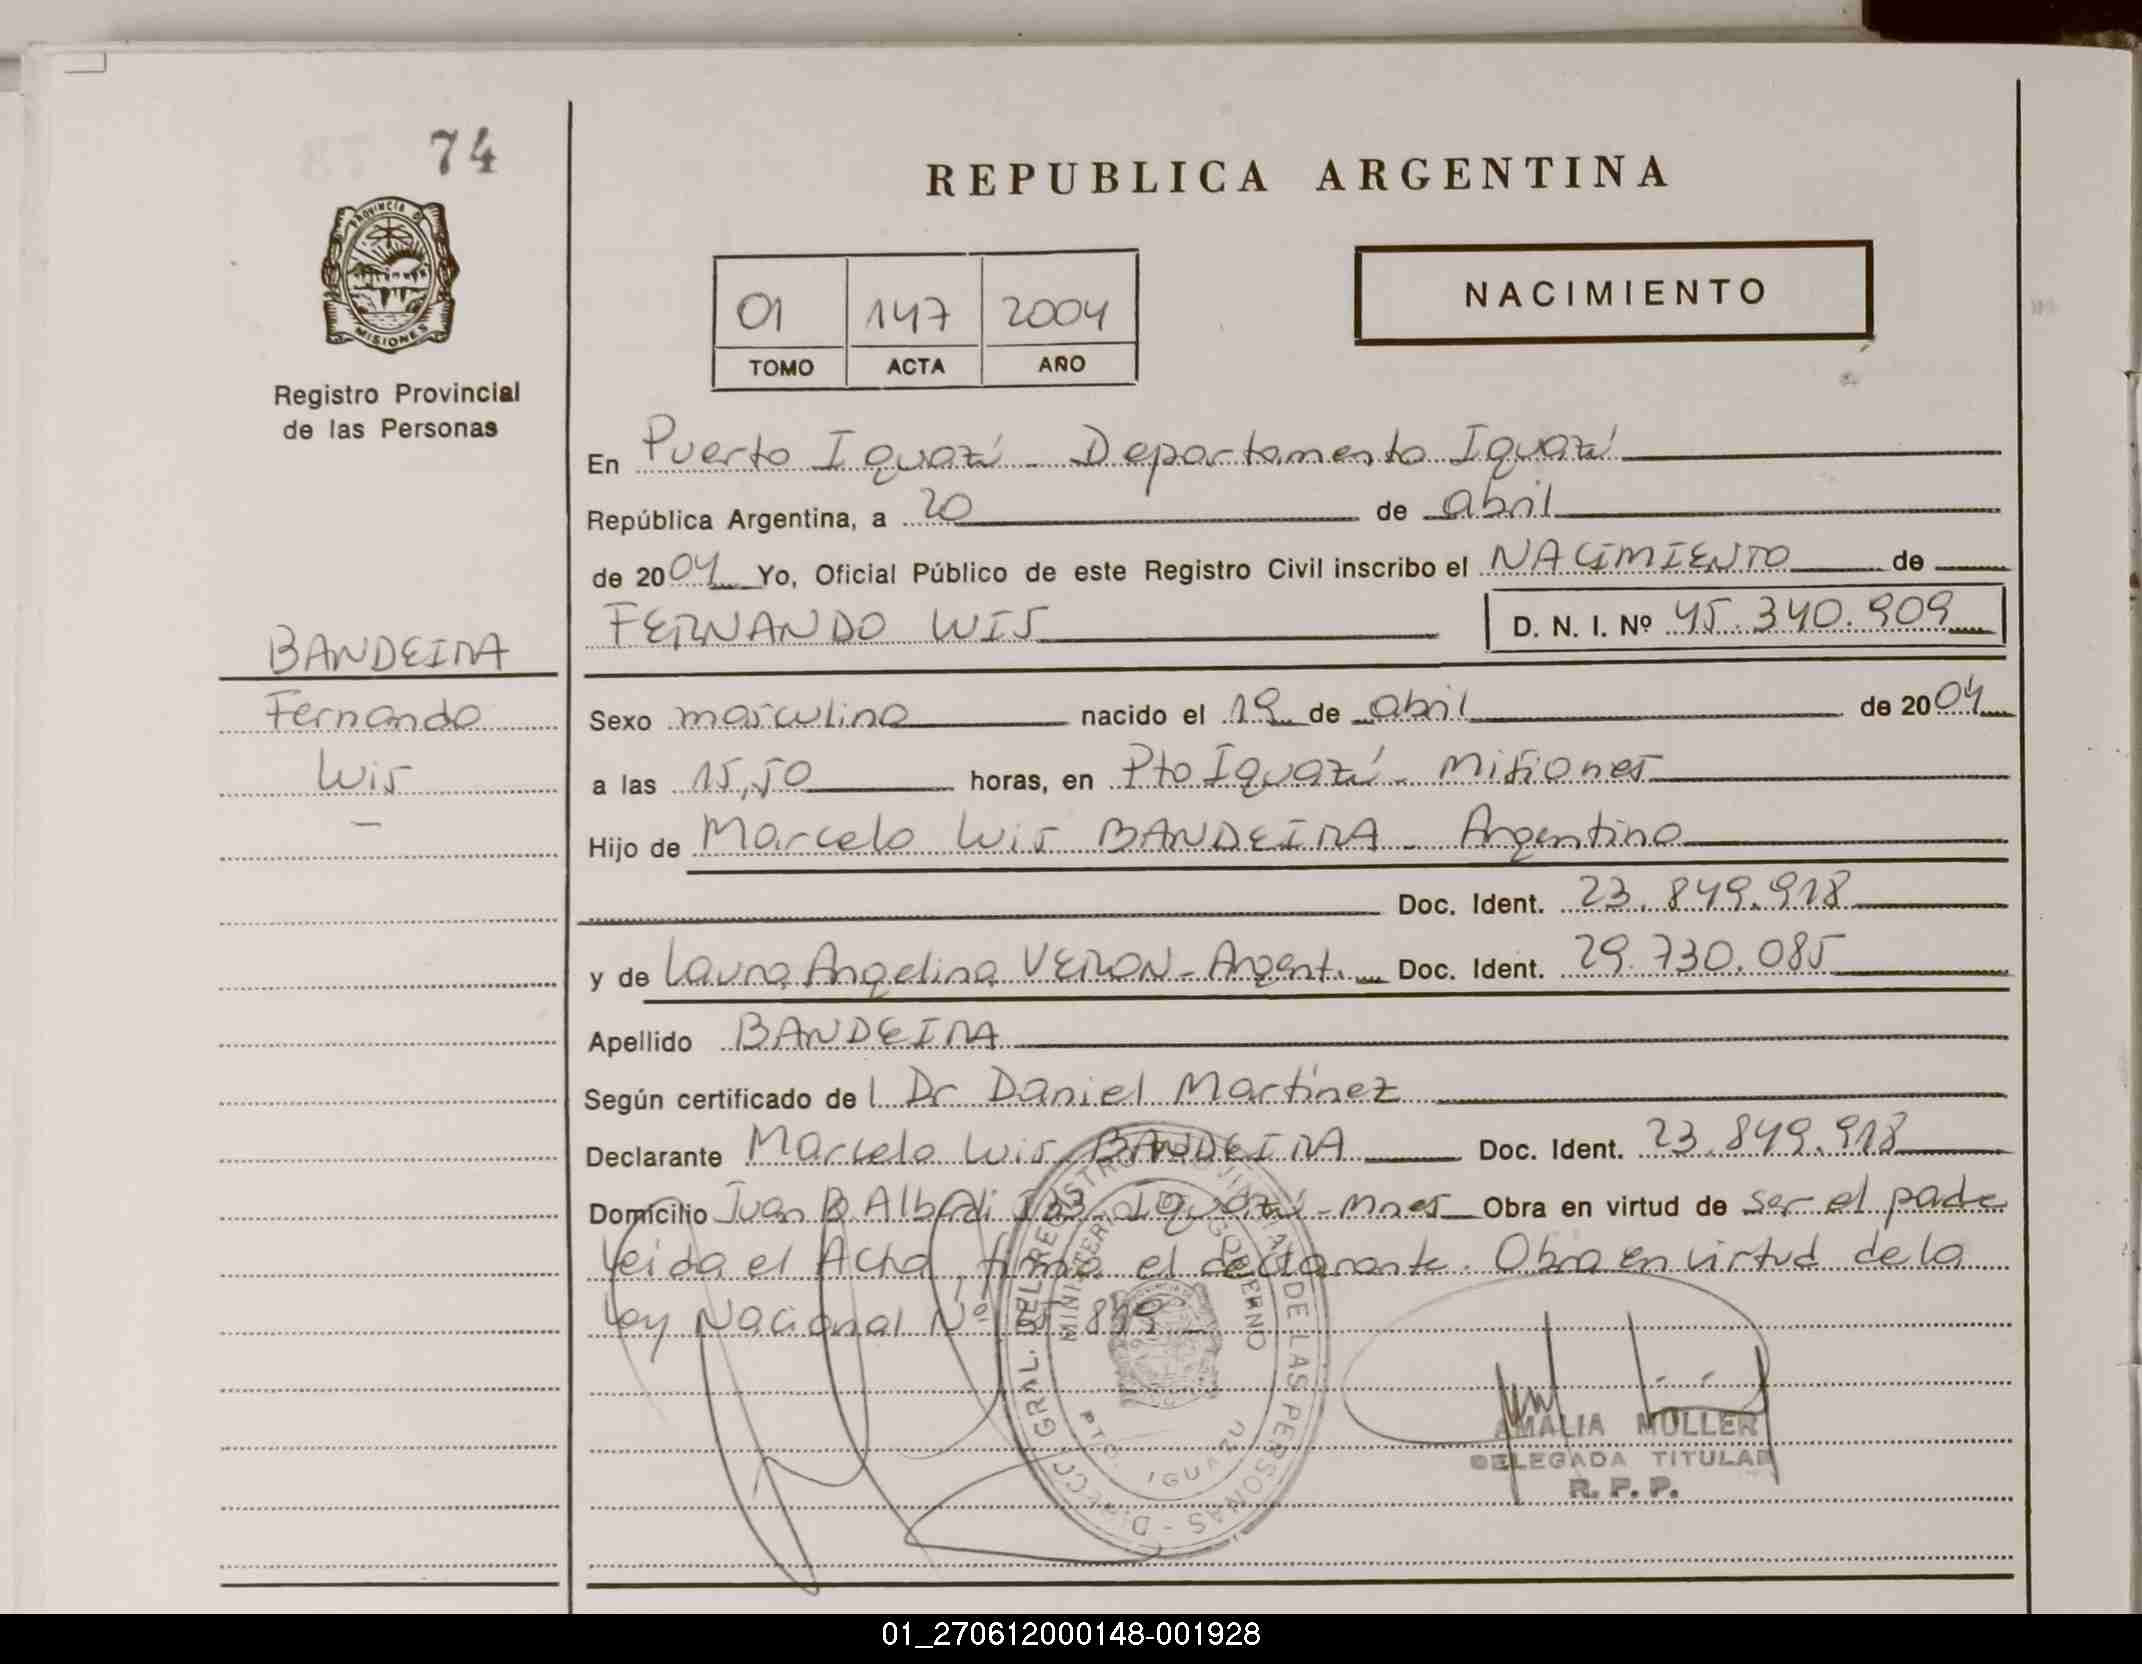 74
REPUBLICA ARGENTINA
PROVINCIA DE
MISIONES
Registro Provincial
de las Personas
01 147 2004
TOMO ACTA AÑO
NACIMIENTO
En Puerto Iguazú - Departamento Iguazú
República Argentina, a 20 de abril
de 2004 Yo, Oficial Público de este Registro Civil inscribo el NACIMIENTO de
FERNANDO LUIS D. N. I. Nº 45.340.909
BANDEIRA
Fernando
Luis
Sexo masculino nacido el 19 de abril de 2004
a las 15,50 horas, en Pto Iguazú - Misiones
Hijo de Marcelo Luis BANDEIRA - Argentino
Doc. Ident. 23.849.918
y de Laura Angelina VERON - Argent. Doc. Ident. 29.730.085
Apellido BANDEIRA
Según certificado del Dr Daniel Martínez
Declarante Marcelo Luis BANDEIRA Doc. Ident. 23.849.918
Domicilio Juan B Alberdi Iguazú - Mnes Obra en virtud de ser el padre
leida el Acta, firma el declarante. Obra en virtud de la
ley Nacional Nº
DIRECC. GRAL. DEL REGISTRO PROVINCIAL DE LAS PERSONAS
MINISTERIO DE GOBIERNO
PTO. IGUAZU
AMALIA MULLER
DELEGADA TITULAR
R. P. P.
01_270612000148-001928